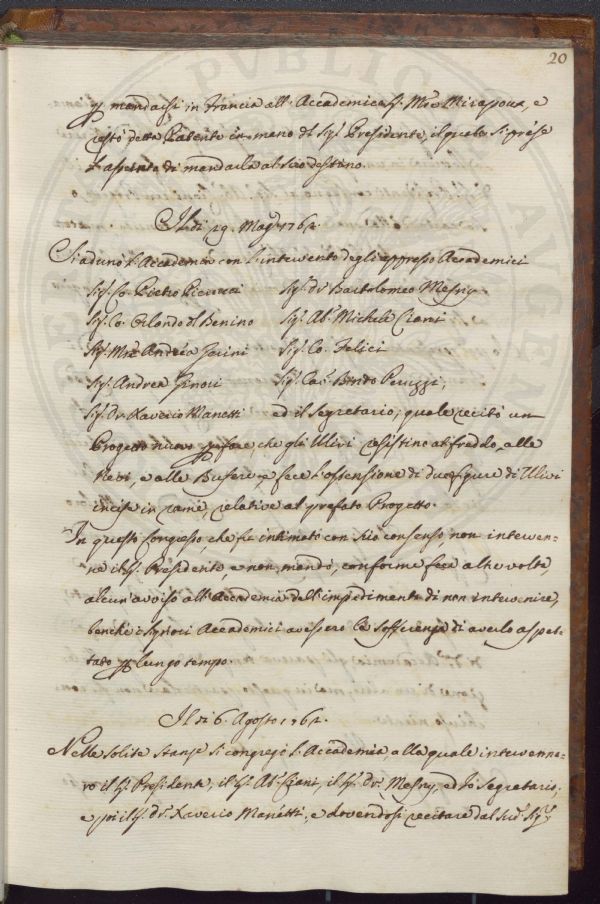 20
p mandarsi in Francia all' Accademica S. Mre Mirapoux, e
restò detta Patente in mano dl Sigr. Presidente, il quale si prese
l'assunto di mandarla al suo destino.
Il dì 29. Magg. 1762.
Si adunò l'Accademia con l'intervento degli appresso Accademici
Sigr. Co. Pietro Sigr. Dr. Bartolomeo Mesny
Sigr. Co. Orlando dl Benino Sigr. Ab. Michele Ciani
Sigr. Mre. Andrea Gerini Sigr. Co. Felici
Sigr. Andrea Ginori Sigr. Cav. Bindo Peruzzi,
Sigr. Dr. Xaverio Manetti ed il Segretario, quale recitò un
Progetto nuovo p fare, che gli Ulivi resistino al freddo, alle
Nevi, e alle Bufere e fece l'ostensione di due figure di Ulivi
incise in rame, relative al prefato Progetto.
In questo Congresso, che fu intimato con suo consenso non interven-
ne il S. Presidente, e non mandò, conforme fece altre volte,
alcun avviso all' Accademia dell' impedimento di non intervenire,
benchè i Signori Accademici avessero la sofferenza di averlo aspet-
tato p lungo tempo.
Il dì 6. Agosto 1762.
Nelle solite stanze si congregò l'Accademia, alla quale intervenne-
ro il S. Presidente, il S. Ab. Ciani, il S. Dr. Mesny, ed Io Segretario,
e poi il S. Dr. Xaverio Manetti, e dovendosi recitare dal Sud. Sigr.